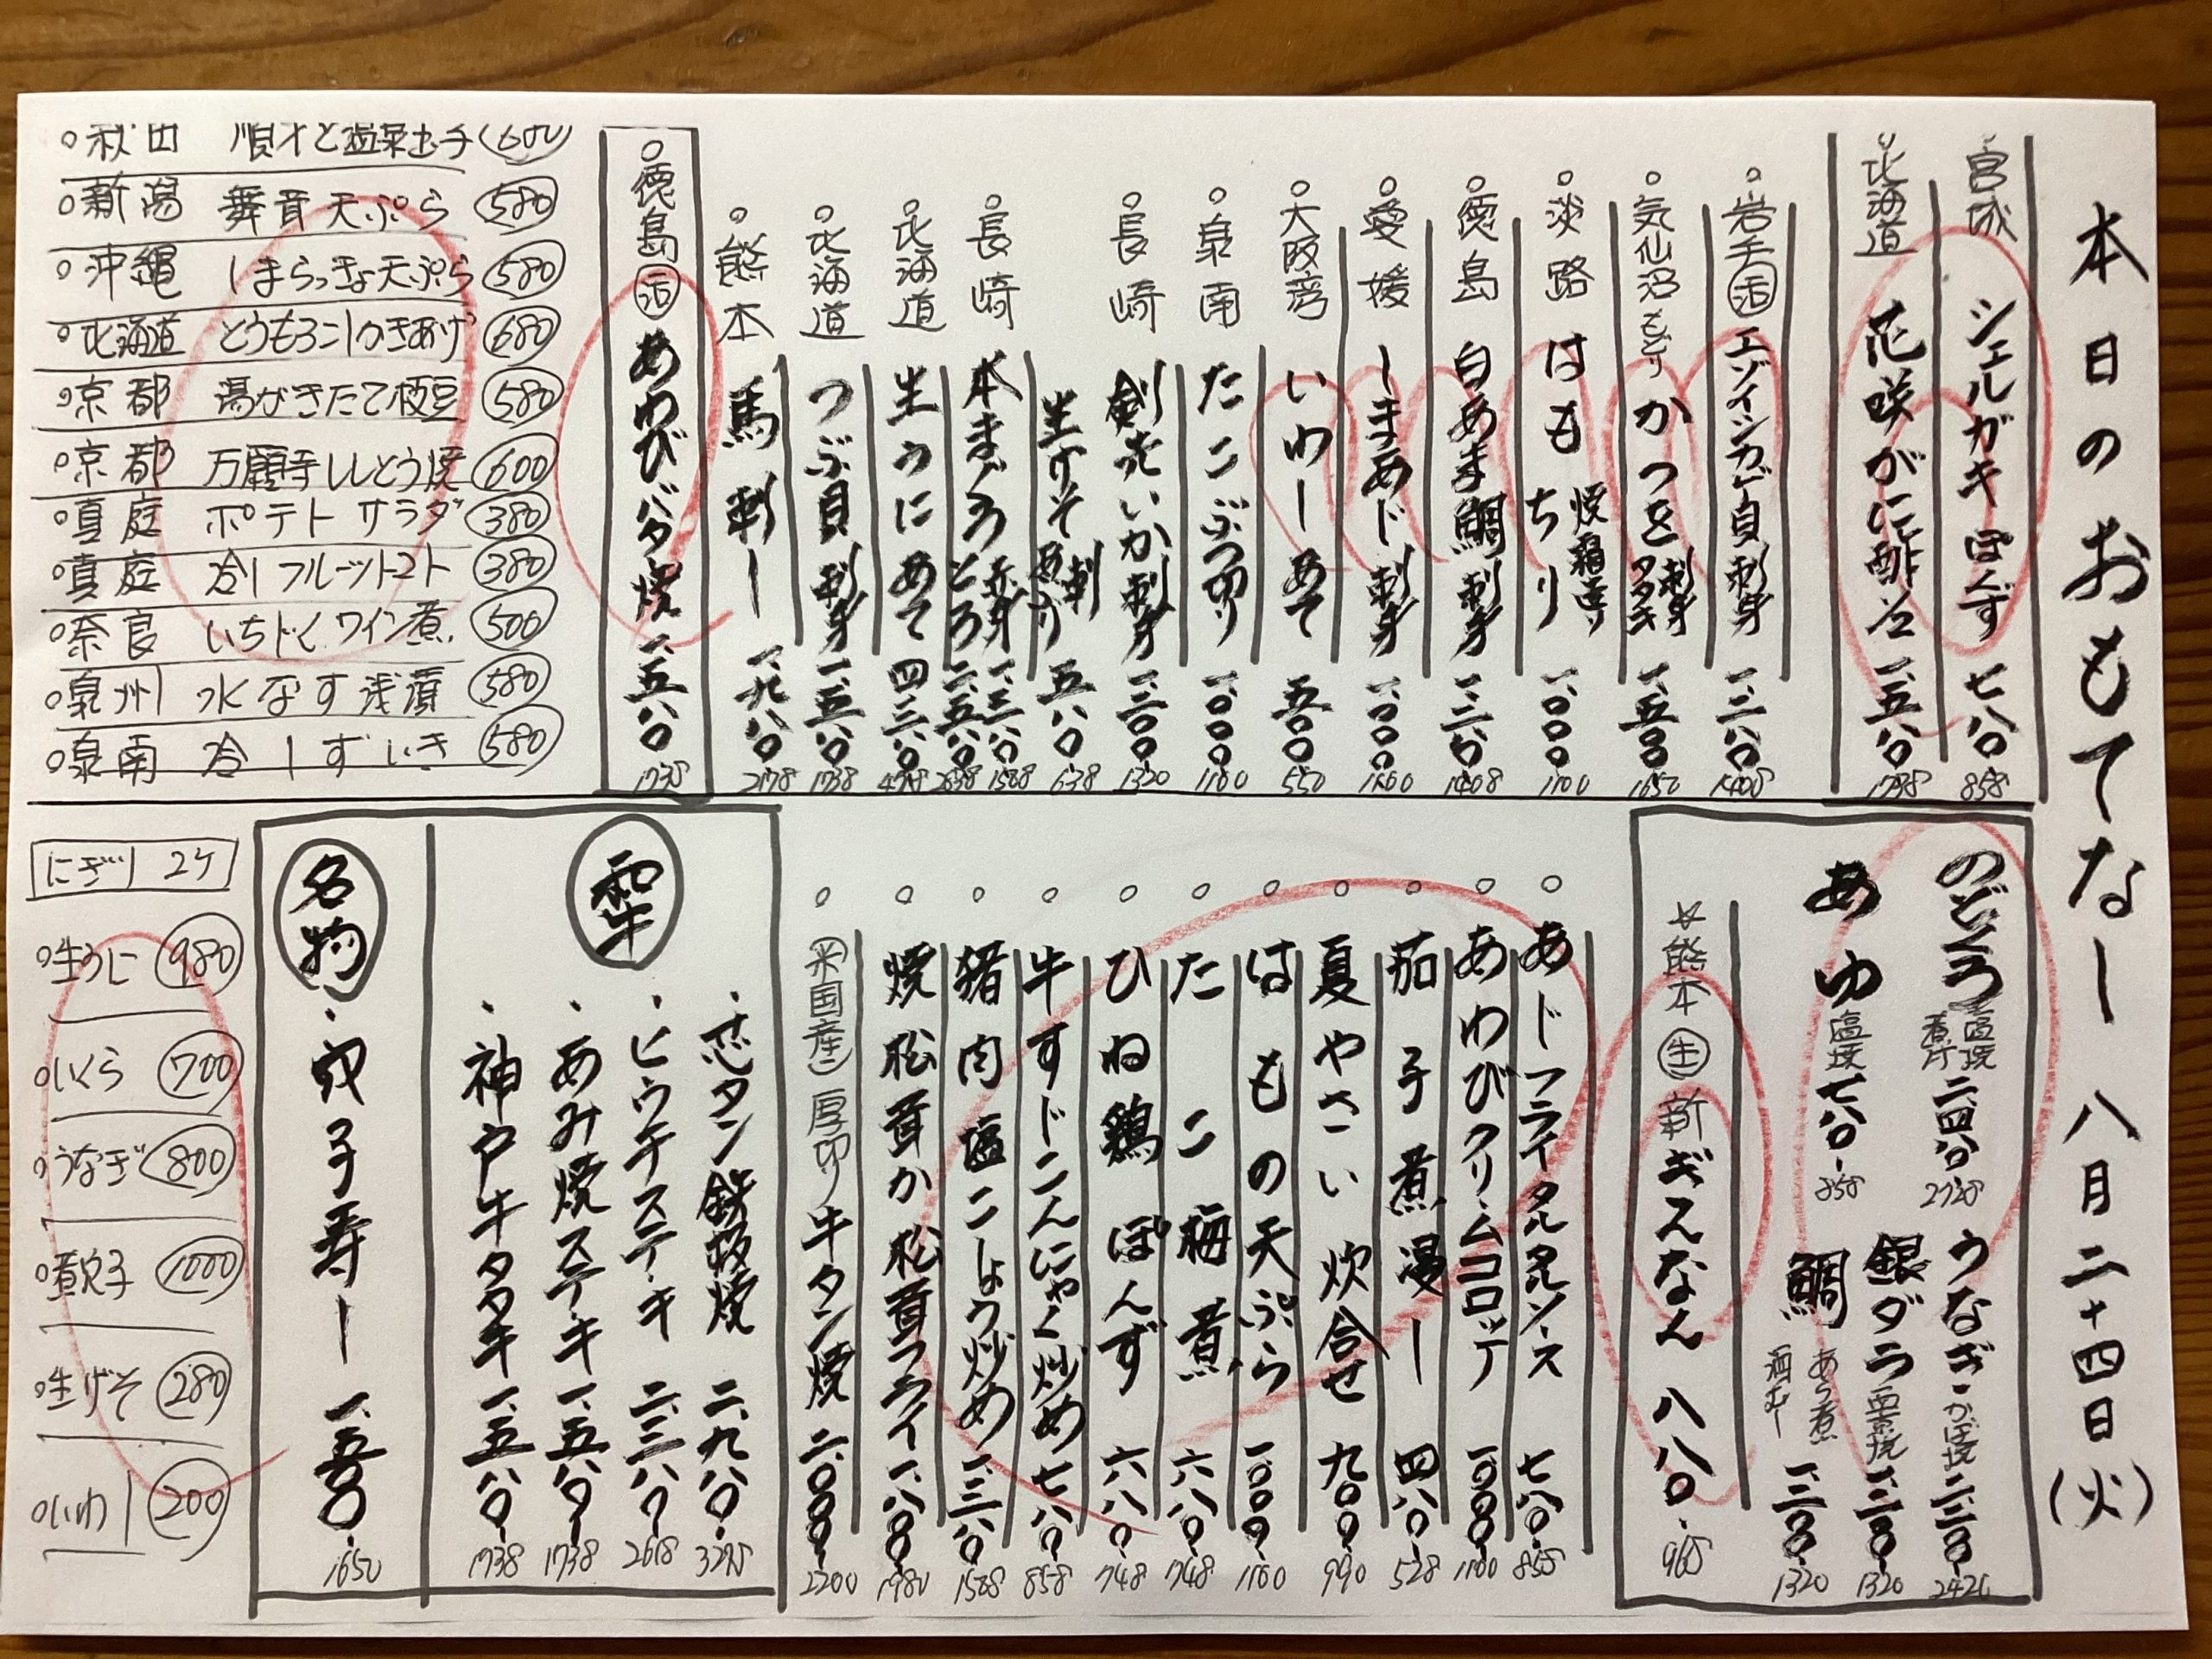 本日のおもてなし 八月二十四日(火)
宮城 シェルガキぽんず 七八〇 858
北海道 花咲がに酢 一、五八〇 1738
岩手 活 エゾイシカゲ貝 刺身 一、二八〇 1408
気仙沼 もどり かつを 刺身 タタキ 一、五〇〇 1650
淡路 はも ちり 焼霜造り 一、〇〇〇 1100
徳島 白あま鯛 刺身 一、二八〇 1408
愛媛 しまあじ 刺身 一、〇〇〇 1100
大阪湾 いわし あて 五〇〇 550
泉南 たこぶつ切り 一、〇〇〇 1100
長崎 剣先いか 刺身 一、二〇〇 1320
生げそ 刺 あぶり 五八〇 638
長崎 本まぐろ 赤身 一、三八〇 1518
とろ 二、五八〇 2838
北海道 生うに あて 四、三八〇 4818
北海道 つぶ貝 刺身 一、五八〇 1738
熊本 馬刺し 一、九八〇 2178
徳島 活 あわびバタ焼 一、五八〇 1738
秋田 順才と温泉玉子 600
新潟 舞茸天ぷら 580
沖縄 しまらっきょ天ぷら 580
北海道 とうもろこしかきあげ 680
京都 湯がきたて枝豆 580
京都 万願寺ししとう焼 600
真庭 ポテトサラダ 380
真庭 冷しフルーツトマト 380
奈良 いちじくワイン煮 500
泉州 水なす浅漬 580
泉南 冷しずいき 580
のどぐろ 塩焼 煮付 二、四八〇 2728
あゆ 塩焼 七八〇 858
うなぎ かば焼 二、二〇〇 2420
銀ダラ 西京焼 一、二〇〇 1320
鯛 あら煮 酒むし 一、二〇〇 1320
☆熊本 生 新ぎんなん 八八〇 968
あじフライタルタルソース 七八〇 858
あわびクリームコロッケ 一、〇〇〇 1100
茄子煮浸し 四八〇 528
夏やさい炊合せ 九〇〇 990
はもの天ぷら 一、〇〇〇 1100
たこ梅煮 六八〇 748
ひね鶏ぽんず 六八〇 748
牛すじこんにゃく炒め 七八〇 858
猪肉塩こしょう炒め 一、三八〇 1518
焼松茸か松茸フライ 一、八〇〇 1980
(米国産) 厚切り牛タン焼 二、〇〇〇 2200
和牛
・芯タン鉄板焼 二、九八〇 3278
・ヒウチステーキ 二、三八〇 2618
・あみ焼ステーキ 一、五八〇 1738
・神戸牛タタキ 一、五八〇 1738
名物
・穴子寿し 一、五〇〇 1650
にぎり 2ケ
生うに 980
いくら 700
うなぎ 800
煮穴子 1000
生げそ 280
いわし 200